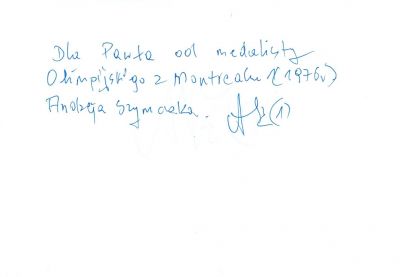 Dla Pawła od medalisty
Olimpijskigo z Montrealu (1976r)
Andrzeja Szymczaka. (1)